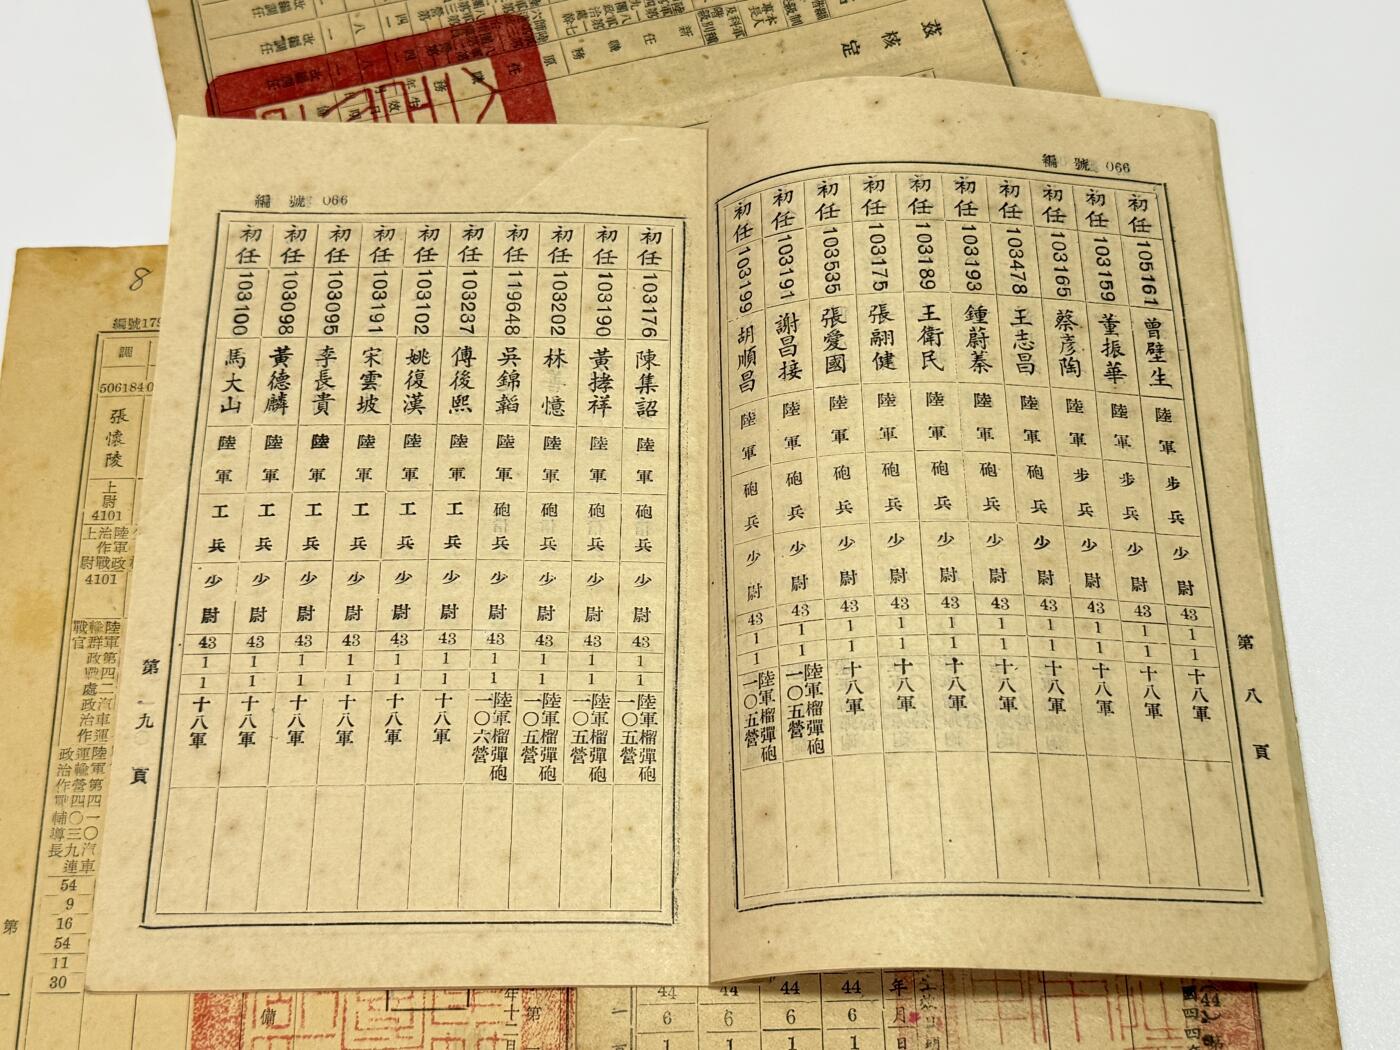 編號 066
初任 105161 曾壁生 陸軍 步兵 少尉 43 1 1 十八軍
初任 103159 董振華 陸軍 步兵 少尉 43 1 1 十八軍
初任 103165 蔡彦陶 陸軍 步兵 少尉 43 1 1 十八軍
初任 103478 王志昌 陸軍 砲兵 少尉 43 1 1 十八軍
初任 103193 鍾蔚蓁 陸軍 砲兵 少尉 43 1 1 十八軍
初任 103189 王衛民 陸軍 砲兵 少尉 43 1 1 十八軍
初任 103175 張翮健 陸軍 砲兵 少尉 43 1 1 十八軍
初任 103535 張愛國 陸軍 砲兵 少尉 43 1 1 十八軍
初任 103191 謝昌接 陸軍 砲兵 少尉 43 1 1 陸軍榴彈砲一〇五營
初任 103199 胡順昌 陸軍 砲兵 少尉 43 1 1 陸軍榴彈砲一〇五營
第八頁
編號 066
初任 103176 陳集詔 陸軍 砲兵 少尉 43 1 1 陸軍榴彈砲一〇五營
初任 103190 黃摶祥 陸軍 砲兵 少尉 43 1 1 陸軍榴彈砲一〇五營
初任 103202 林憶 陸軍 砲兵 少尉 43 1 1 陸軍榴彈砲一〇五營
初任 119648 吳錦韜 陸軍 砲兵 少尉 43 1 1 陸軍榴彈砲一〇六營
初任 103237 傅後熙 陸軍 工兵 少尉 43 1 1 十八軍
初任 103102 姚復漢 陸軍 工兵 少尉 43 1 1 十八軍
初任 103191 宋雲坡 陸軍 工兵 少尉 43 1 1 十八軍
初任 103095 李長貴 陸軍 工兵 少尉 43 1 1 十八軍
初任 103098 黃德麟 陸軍 工兵 少尉 43 1 1 十八軍
初任 103100 馬大山 陸軍 工兵 少尉 43 1 1 十八軍
第九頁
茲核定
8
編號
調
506184
張懷陵
上尉
4101
陸軍政治作戰上尉
4101
54
9
16
54
11
30
第
44 44 44 44 年
6 6 6 6 月
1 1 1 1 日